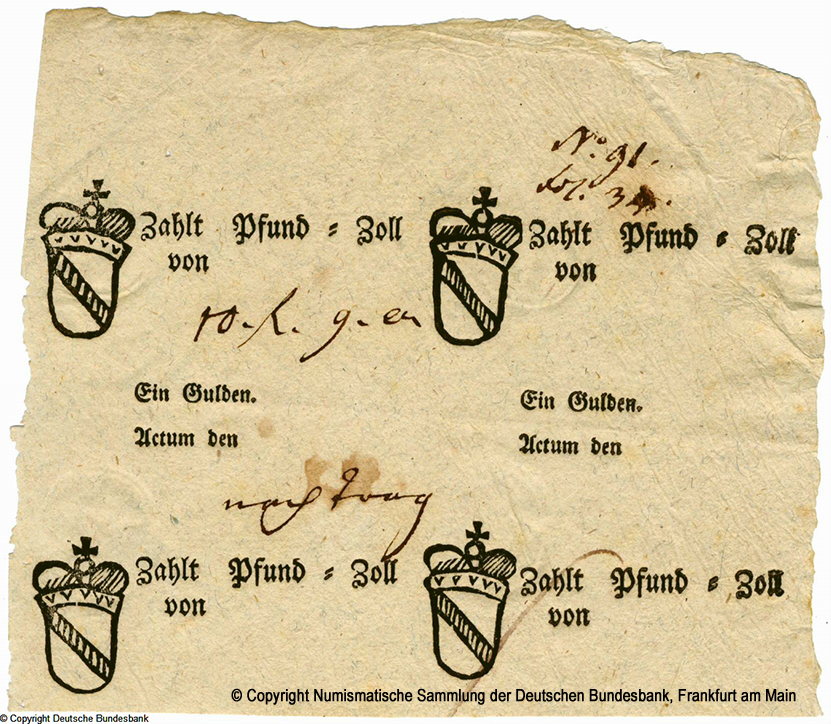 No. 91.
Zahlt Pfund = Zoll
von
Zahlt Pfund = Zoll
von
Ein Gulden.
Actum den
Ein Gulden.
Actum den
nachtrag
Zahlt Pfund = Zoll
von
Zahlt Pfund = Zoll
von
© Copyright Numismatische Sammlung der Deutschen Bundesbank, Frankfurt am Main
© Copyright Deutsche Bundesbank